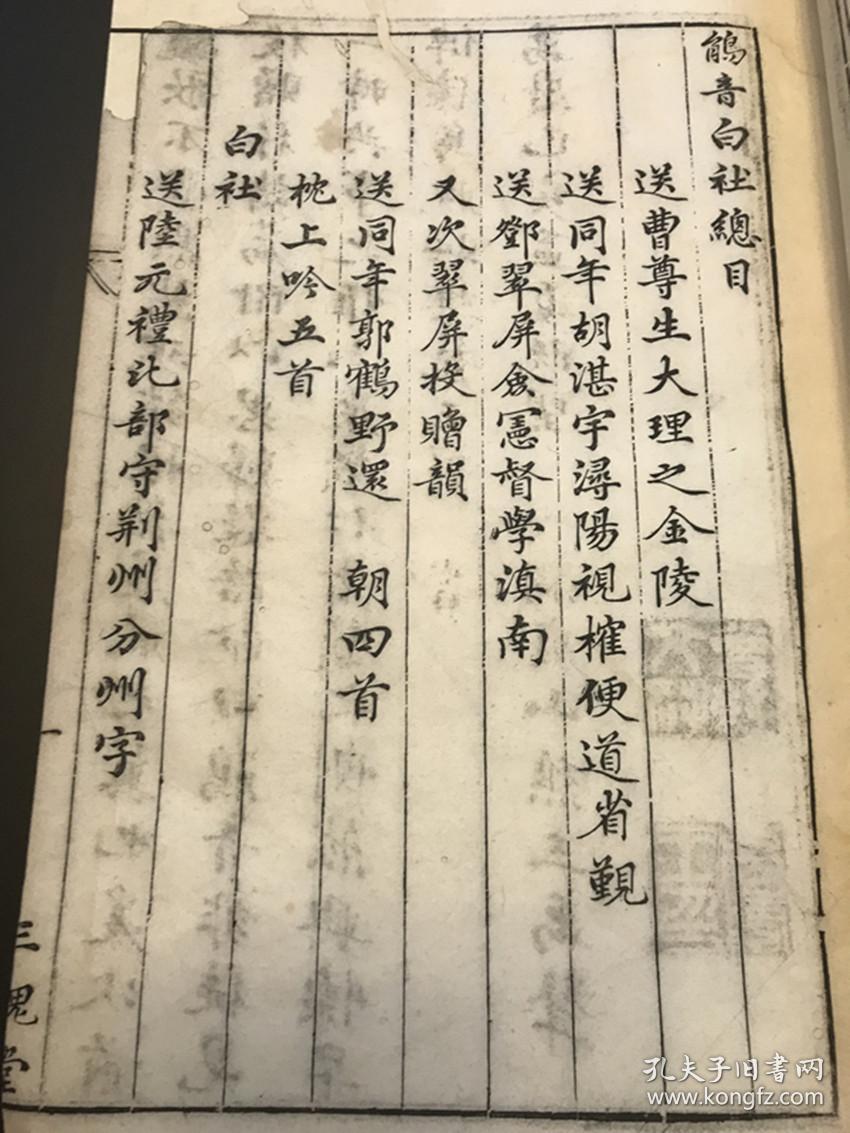 鵃音白社總目
送曹尊生大理之金陵
送同年胡湛宇潯陽視榷便道省觀
送鄧翠屏僉憲督學滇南
又次翠屏投贈韻
送同年郭鶴野還 朝四首
枕上吟五首
白社
送陸元禮比部守荆州分州字
一
三槐堂
孔夫子旧书网
www.kongfz.com